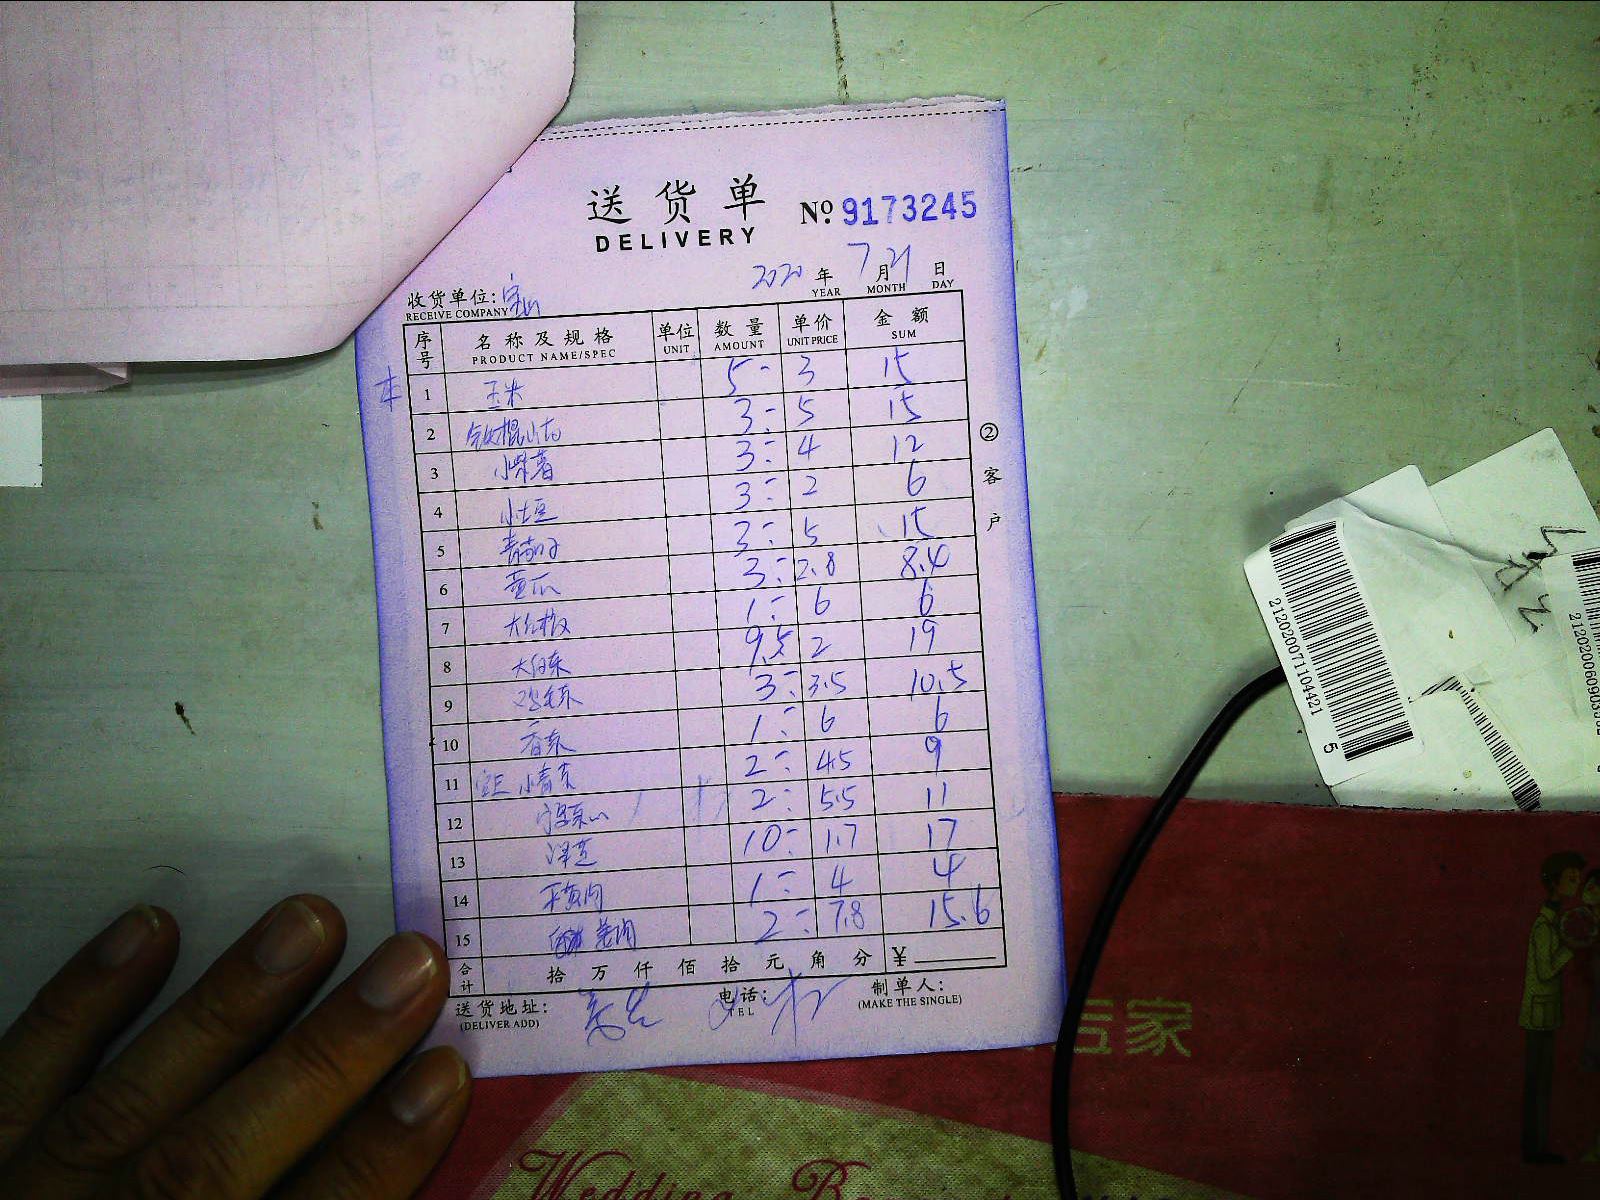 送货单
DELIVERY
№ 9173245
2020 年 7 月 21 日
YEAR MONTH DAY
收货单位:
RECEIVE COMPANY
序号 名称及规格 单位 数量 单价 金额
PRODUCT NAME/SPEC UNIT AMOUNT UNIT PRICE SUM
1 玉米 5- 3 15
2 铁棍山药 3- 5 15
3 小紫薯 3- 4 12
4 小土豆 3- 2 6
5 青茄子 3- 5 15
6 黄瓜 3- 2.8 8.4
7 1- 6 6
8 大白菜 9.5 2 19
9 3- 3.5 10.5
10 香菜 1- 6 6
11 小青菜 2- 4.5 9
12 2- 5.5 11
13 洋芋 10- 1.7 17
14 1- 4 4
15 2- 7.8 15.6
合计 拾 万 仟 佰 拾 元 角 分 ¥
送货地址:
(DELIVER ADD)
电话:
TEL
制单人:
(MAKE THE SINGLE)
② 客户
2120200711044215
家
Wedding